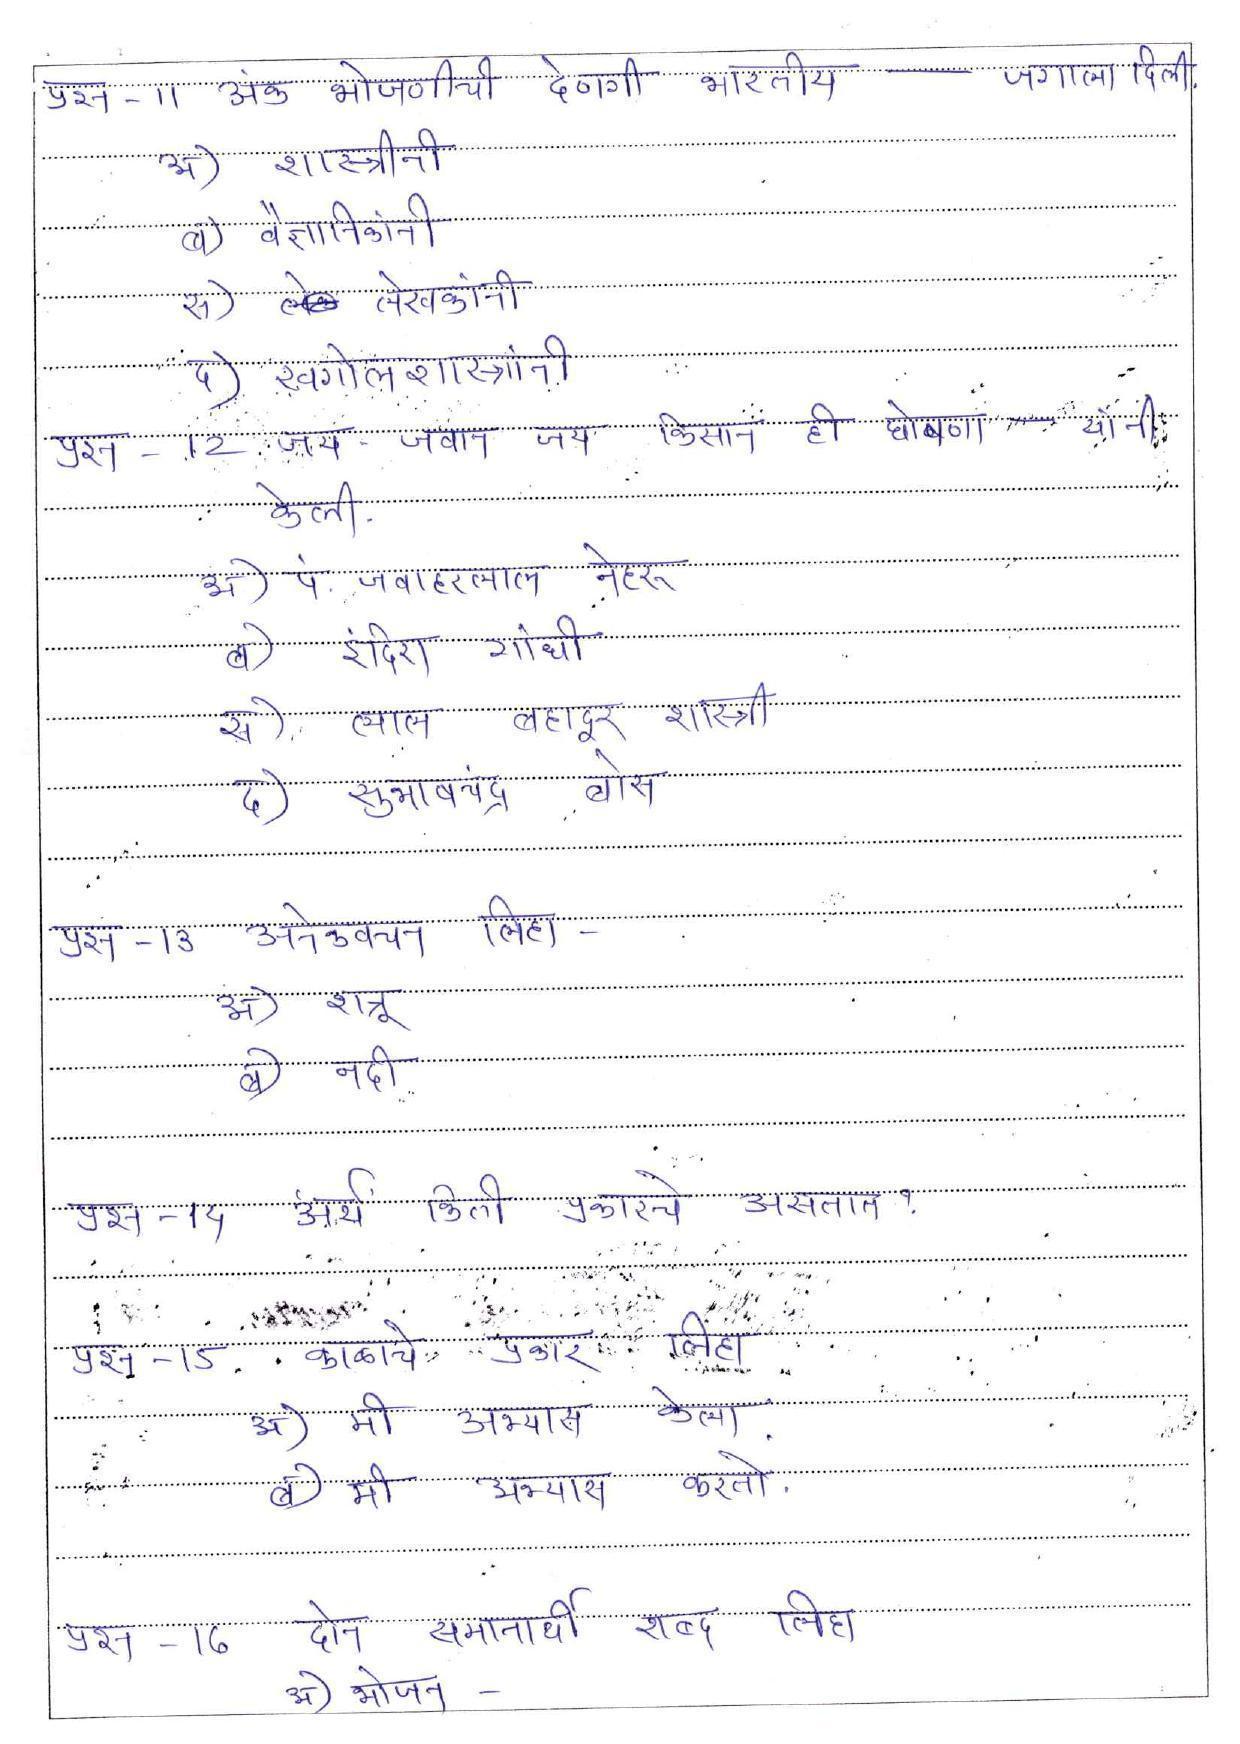 प्रश्न - 11 अंक मोजणीची देणगी भारतीय —— जगाला दिली.
अ) शास्त्रीनी
ब) वैज्ञानिकांनी
स) लेखकांनी
द) खगोलशास्त्रांनी
प्रश्न - 12 जय - जवान जय किसान ही घोषणा —— यांनी
केली.
अ) पं. जवाहरलाल नेहरू
ब) इंदिरा गांधी
स) लाल बहादूर शास्त्री
द) सुभाषचंद्र बोस
प्रश्न - 13 अनेकवचन लिहा -
अ) शत्रू
ब) नदी
प्रश्न - 14 अर्थ किती प्रकारचे असतात?
प्रश्न - 15 काळाचे प्रकार लिहा
अ) मी अभ्यास केला.
ब) मी अभ्यास करतो.
प्रश्न - 16 दोन समानार्थी शब्द लिहा
अ) भोजन -